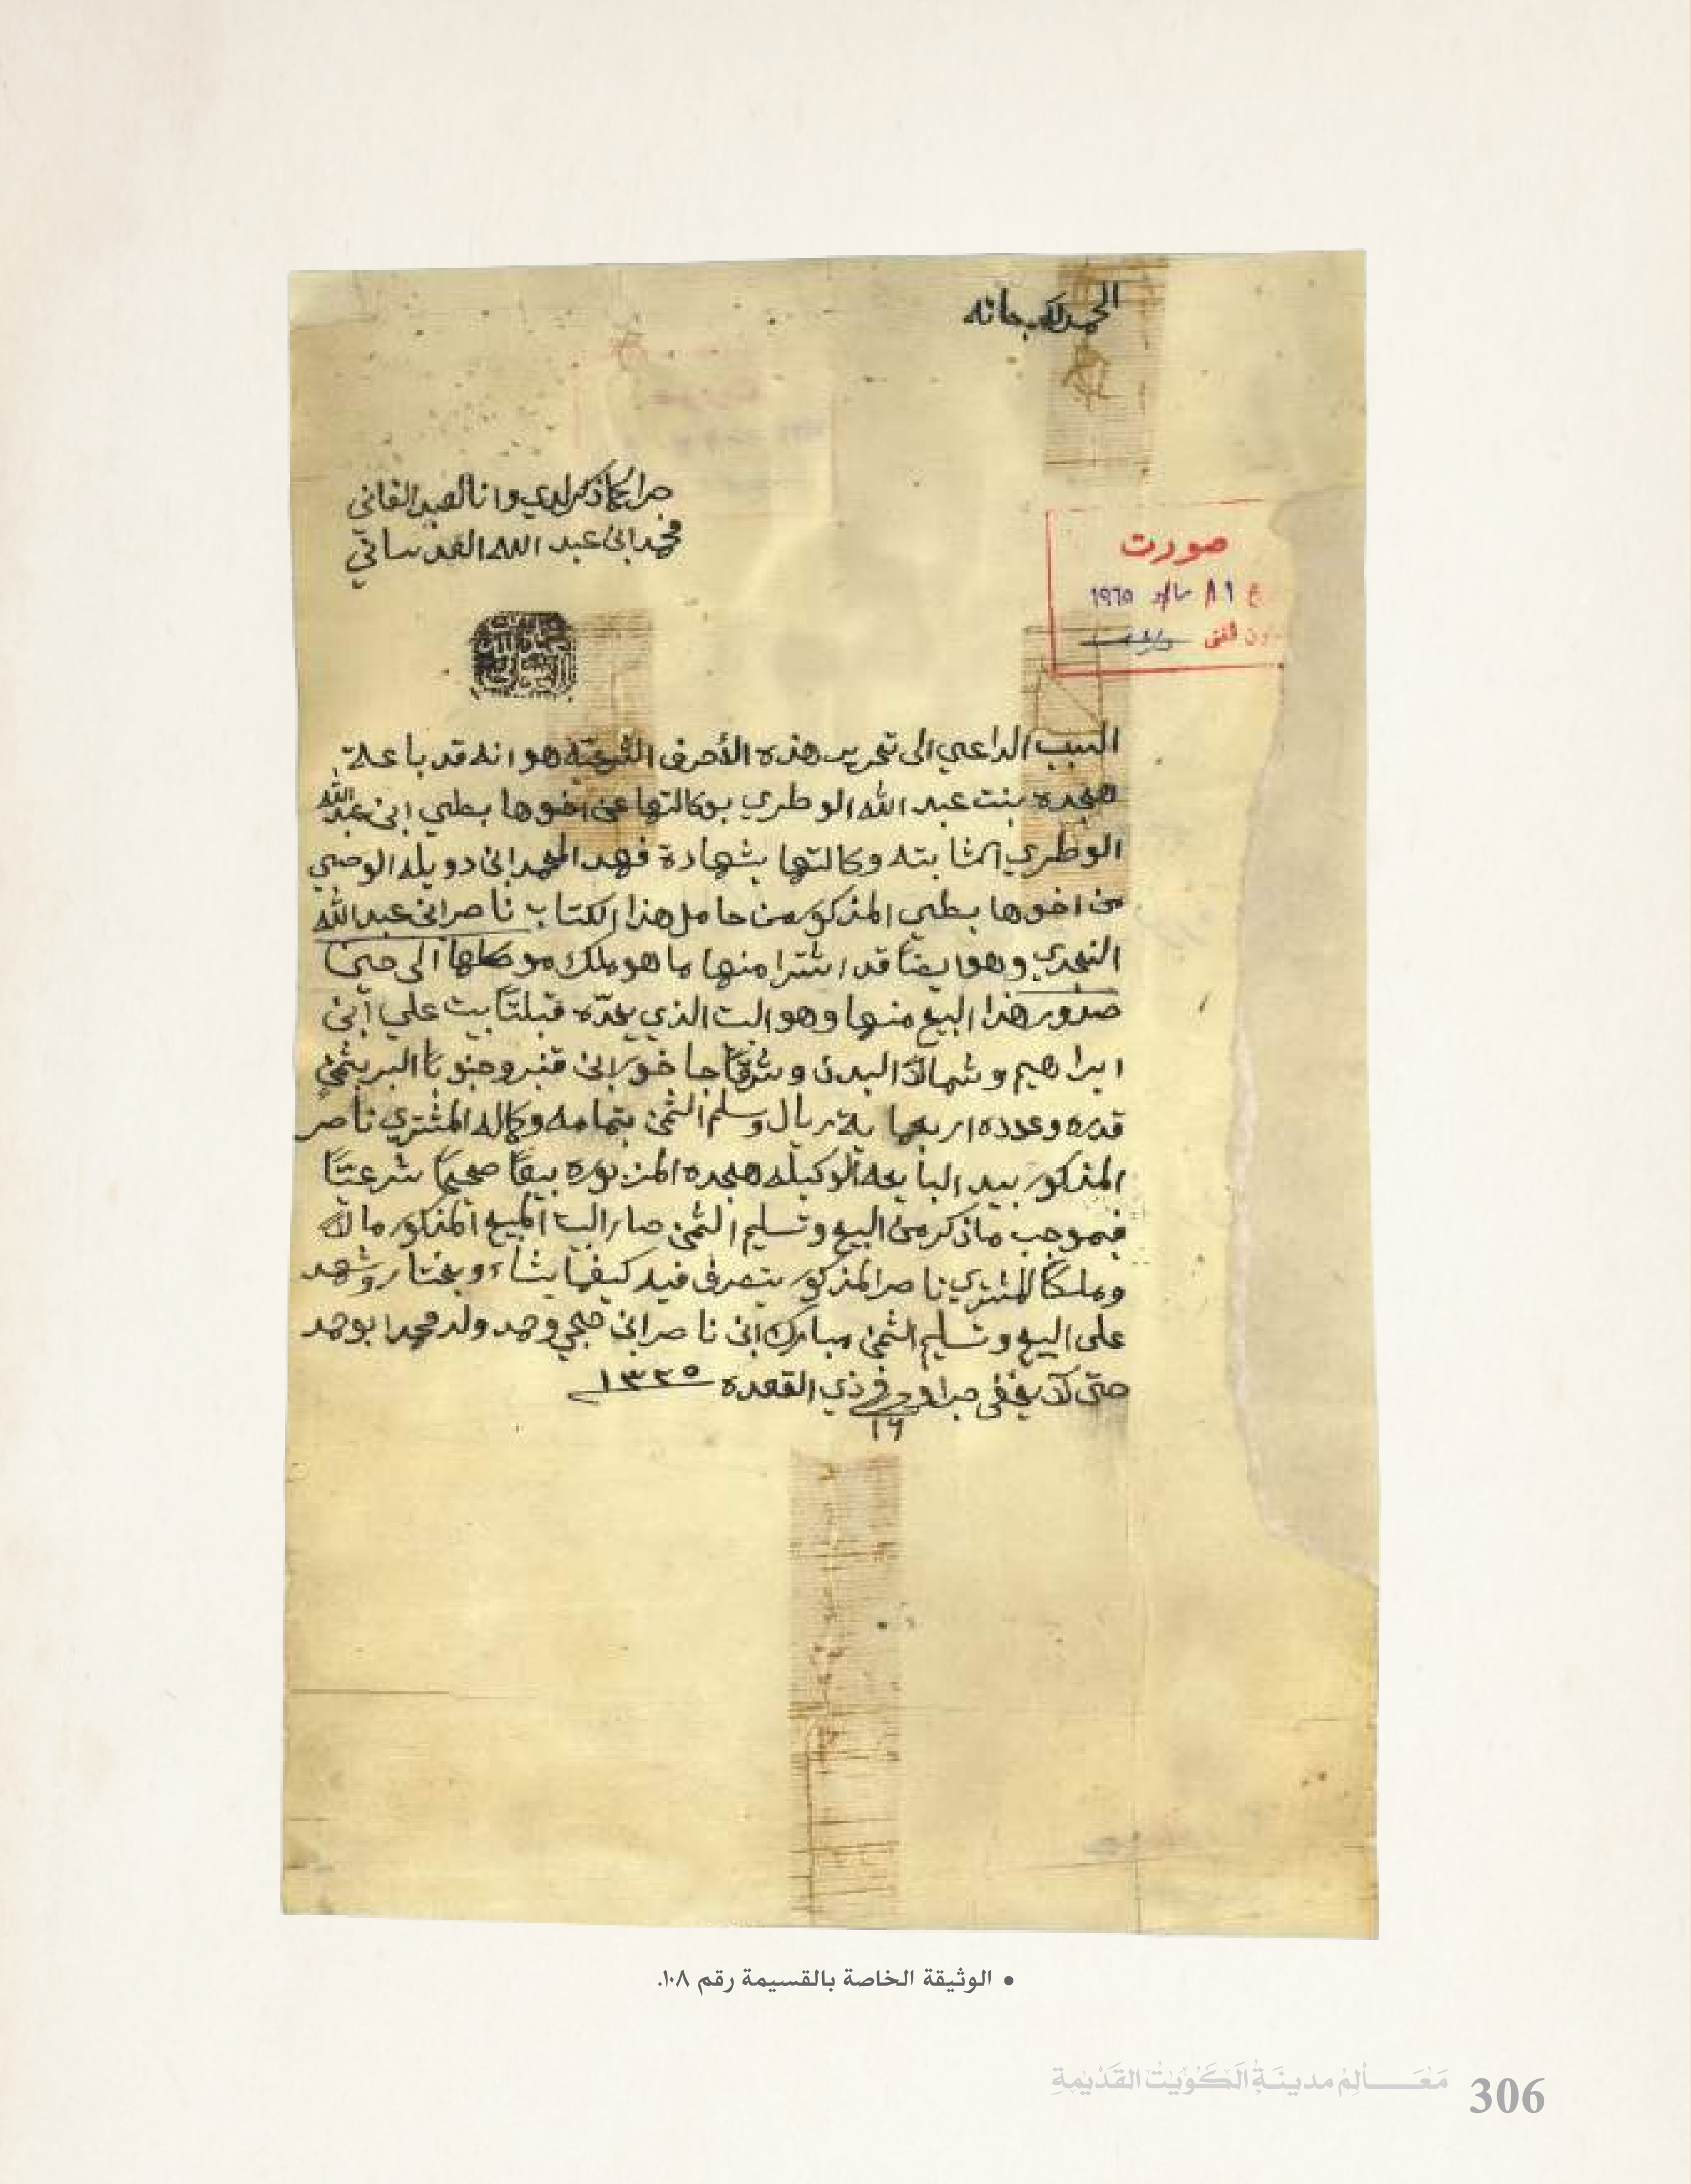 الحمد لله سبحانه
جرا كما ذكر لدي وانا العبد الفاني
محمد ابن عبد الله العدساني
صورت
١٩٦٥
السبب الداعي الى تحرير هذه الأحرف الشرعيّة هو انه قد باعة
هجده بنت عبد الله الوطري بوكالتها عن اخوها بطي ابن عبد الله
الوطري الثابته وكالتها بشهادة فهد المحمد ابن دويله الوصي
من اخوها بطي المذكور من حامل هذا الكتاب ناصر ابن عبد الله
النجدي وهو ايضاً قد اشترا منها ما هو ملك موكلها الى حين
صدور هذا البيع منها وهو البيت الذي يحدّه قبلتاً بيت علي ابن
ابراهيم وشمالاً البدن وشرقاً جاخور ابن قنبر وجنوباً البر بثمن
قدره وعدده اربعماية ريال وسلم الثمن بتمامه وكماله المشتري ناصر
المذكور بيد البايعه الوكيله هجده المزبوره بيعاً صحيحاً شرعيّاً
فبموجب ما ذكر من البيع وتسليم الثمن صار البيت المبيع المذكور مالاً
وملكاً للمشتري ناصر المذكور يتصرف فيه كيفما يشاء ويختار وشهد
على البيع وتسليم الثمن مبارك ابن ناصر ابن حجي وحمد ولد محمد ابوحمد
حتى لا يخفى جرا وحرر في ذي القعده ١٣٣٥
١٦
• الوثيقة الخاصة بالقسيمة رقم ١٠٨.
مَعَالِمُ مدينَةِ الكُوَيْت القَدْيمةِ 306